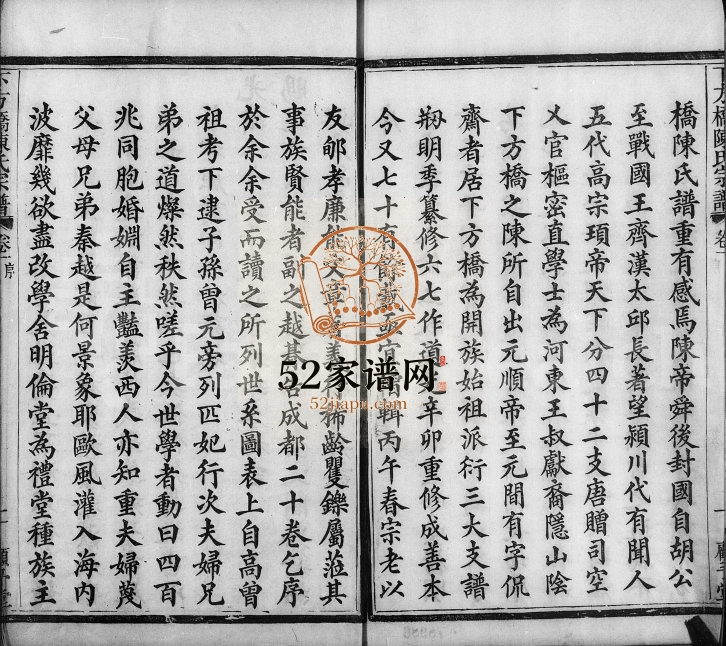 橋陳氏譜重有感焉陳帝舜後封國自胡公
至戰國王齊漢太邱長著望潁川代有聞人
五代高宗頊帝天下分四十二支唐贈司空
乂官樞密直學士為河東王叔獻裔隱山陰
下方橋之陳所自出元順帝至元間有字侃
齋者居下方橋為開族始祖派衍三大支譜
剏明季纂修六七作道光辛卯重修成善本
今又七十有餘載 宜 輯丙午春宗老以
友邮孝廉能文章 善 稀齡矍鑠屬蒞其
事族賢能者副之越朞告成都二十卷乞序
於余余受而讀之所列世系圖表上自高曾
祖考下逮子孫曾元旁列匹妃行次夫婦兄
弟之道燦然秩然嗟乎今世學者動曰四百
兆同胞婚姻自主豔羡西人亦知重夫婦蔑
父母兄弟秦越是何景象耶歐風灌入海内
波靡幾欲盡改學舍明倫堂為禮堂種族主
下方橋陳氏宗譜 卷一 序
一
52家谱网
52jiapu.com